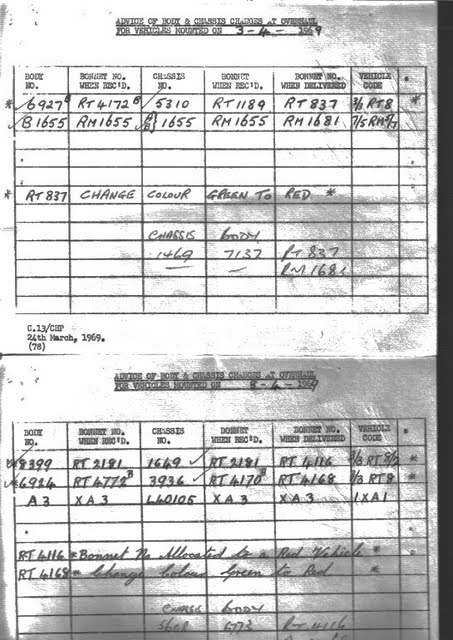 ADVICE OF BODY & CHASSIS CHANGES AT OVERHAUL
FOR VEHICLES MOUNTED ON 3-4-1969
BODY NO. BONNET NO. WHEN REC'D. CHASSIS NO. BONNET WHEN REC'D. BONNET NO. WHEN DELIVERED VEHICLE CODE
* ✓ 6927 B RT 4172 B ✓ 5310 RT 1189 RT 837 2/3 RT8 *
✓ B1655 RM 1655 1655 RM 1655 RM 1681
* RT 837 CHANGE COLOUR GREEN TO RED *
CHASSIS BODY
1469 7137 RT 837
— — RM 1681
C.13/CHP
24th March, 1969.
(78)
ADVICE OF BODY & CHASSIS CHANGES AT OVERHAUL
FOR VEHICLES MOUNTED ON 8-4-1969
BODY NO. BONNET NO. WHEN REC'D. CHASSIS NO. BONNET WHEN REC'D. BONNET NO. WHEN DELIVERED VEHICLE CODE
* 8399 RT 2181 1649 ✓ RT 2181 RT 4116 *
* 6924 RT 4772 B 3936 ✓ RT 4170 B RT 4168 2/3 RT8 *
A3 XA3 L40105 XA3 XA3 1XA1
RT 4116 * Bonnet No Allocated to a Red Vehicle *
RT 4168 * Change Colour Green to Red *
CHASSIS BODY
RT 4116